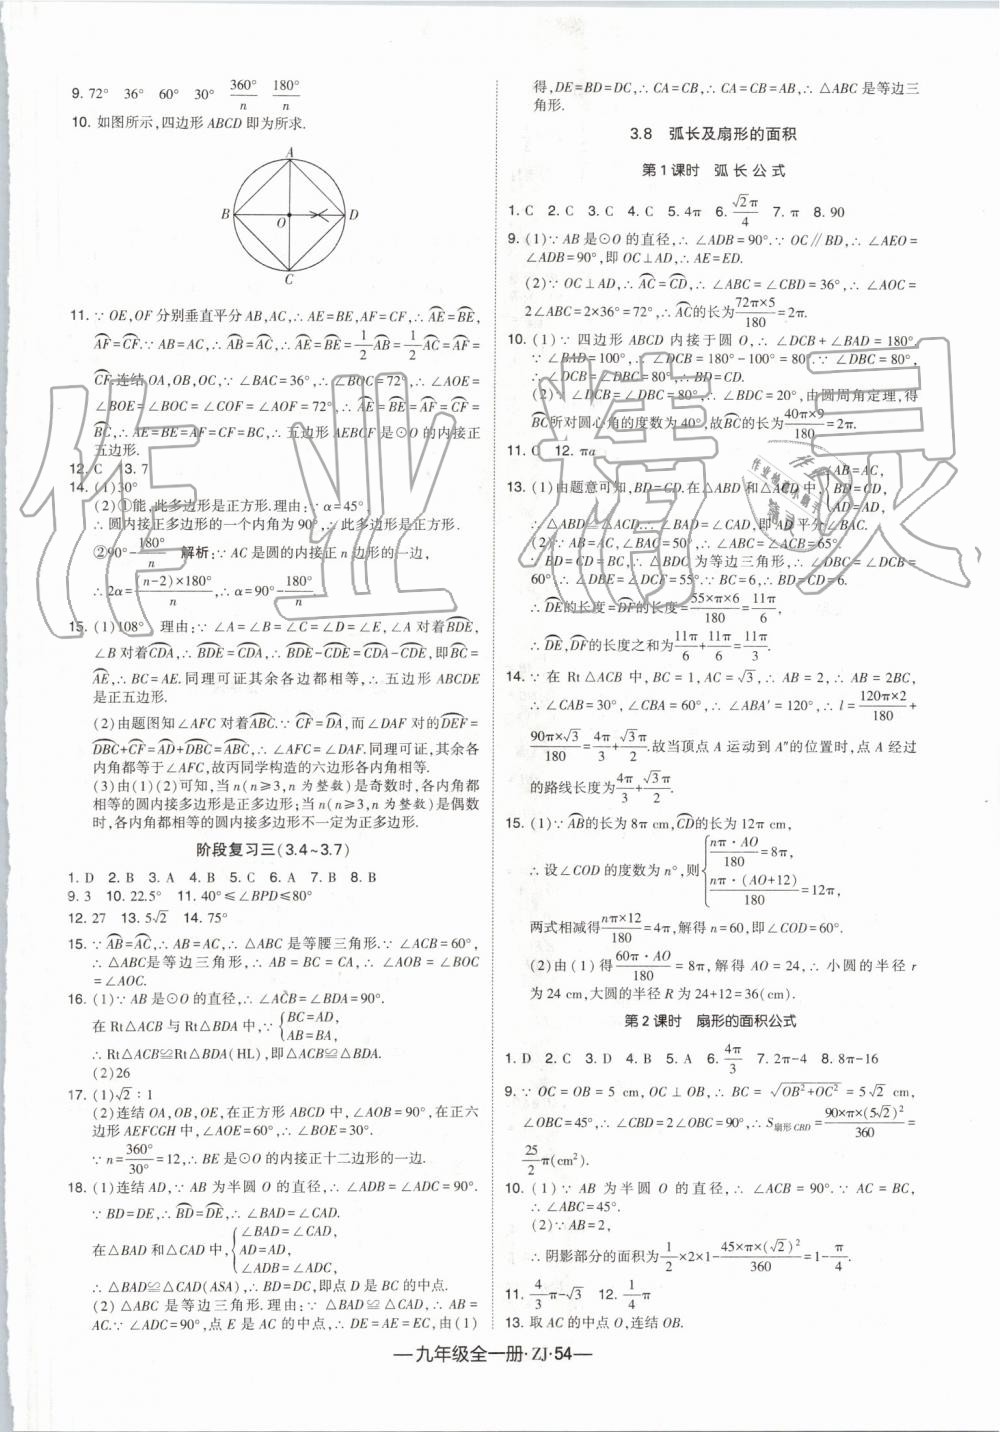 9. 72° 36° 60° 30° 360°/n 180°/n
10. 如图所示,四边形 ABCD 即为所求.
A
B
O
D
C
11. ∵ OE,OF 分别垂直平分 AB,AC,∴ AE=BE,AF=CF,∴ ⌒AE=⌒BE,
⌒AF=⌒CF.∵ AB=AC,∴ ⌒AB=⌒AC,∴ ⌒AE=⌒BE=1/2⌒AB=1/2⌒AC=⌒AF=
⌒CF.连结 OA,OB,OC,∵ ∠BAC=36°,∴ ∠BOC=72°,∴ ∠AOE=
∠BOE=∠BOC=∠COF=∠AOF=72°,∴ ⌒AE=⌒BE=⌒AF=⌒CF=
⌒BC,∴ AE=BE=AF=CF=BC,∴ 五边形 AEBCF 是⊙O 的内接正
五边形.
12. C 13. 7
14. (1)30°
(2)①能,此多边形是正方形.理由:∵ α=45°,
∴ 圆内接正多边形的一个内角为 90°,∴ 此多边形是正方形.
②90°-180°/n 解析:∵ AC 是圆的内接正 n 边形的一边,
∴ 2α=(n-2)×180°/n,∴ α=90°-180°/n
15. (1)108° 理由:∵ ∠A=∠B=∠C=∠D=∠E,∠A 对着⌒BDE,
∠B 对着⌒CDA,∴ ⌒BDE=⌒CDA,∴ ⌒BDE-⌒CDE=⌒CDA-⌒CDE,即⌒BC=
⌒AE,∴ BC=AE.同理可证其余各边都相等,∴ 五边形 ABCDE
是正五边形.
(2)由题图知∠AFC 对着⌒ABC.∵ ⌒CF=⌒DA,而∠DAF 对的⌒DEF=
⌒DBC+⌒CF=⌒AD+⌒DBC=⌒ABC,∴ ∠AFC=∠DAF.同理可证,其余各
内角都等于∠AFC,故丙同学构造的六边形各内角相等.
(3)由(1)(2)可知,当 n(n≥3,n 为整数)是奇数时,各内角都
相等的圆内接多边形是正多边形;当 n(n≥3,n 为整数)是偶数
时,各内角都相等的圆内接多边形不一定为正多边形.
阶段复习三(3.4~3.7)
1. D 2. B 3. A 4. B 5. C 6. A 7. B 8. B
9. 3 10. 22.5° 11. 40°≤∠BPD≤80°
12. 27 13. 5√2 14. 75°
15. ∵ ⌒AB=⌒AC,∴ AB=AC,∴ △ABC 是等腰三角形.∵ ∠ACB=60°,
∴ △ABC是等边三角形,∴ AB=BC=CA,∴ ∠AOB=∠BOC
=∠AOC.
16. (1)∵ AB 是⊙O 的直径,∴ ∠ACB=∠BDA=90°.
在 Rt△ACB 与 Rt△BDA 中,∵ {BC=AD,
AB=BA,
∴ Rt△ACB≌Rt△BDA(HL),即△ACB≌△BDA.
(2)26
17. (1)√2∶1
(2)连结 OA,OB,OE,在正方形 ABCD 中,∠AOB=90°,在正六
边形 AEFCGH 中,∠AOE=60°,∴ ∠BOE=30°.
∵ n=360°/30°=12,∴ BE 是⊙O 的内接正十二边形的一边.
18. (1)连结 AD,∵ AB 为半圆 O 的直径,∴ ∠ADB=∠ADC=90°.
∵ BD=DE,∴ ⌒BD=⌒DE,∴ ∠BAD=∠CAD.
在△BAD 和△CAD 中,{∠BAD=∠CAD,
AD=AD,
∠ADB=∠ADC,
∴ △BAD≌△CAD(ASA),∴ BD=DC,即点 D 是 BC 的中点.
(2)△ABC 是等边三角形.理由:∵ △BAD≌△CAD,∴ AB=
AC.∵ ∠ADC=90°,点 E 是 AC 的中点,∴ DE=AE=EC,由(1)
得,DE=BD=DC,∴ CA=CB,∴ CA=CB=AB,∴ △ABC 是等边三
角形.
3.8 弧长及扇形的面积
第 1 课时 弧长公式
1. C 2. C 3. C 4. C 5. 4π 6. √2π/4 7. π 8. 90
9. (1)∵ AB 是⊙O 的直径,∴ ∠ADB=90°.∵ OC∥BD,∴ ∠AEO=
∠ADB=90°,即 OC⊥AD,∴ AE=ED.
(2)∵ OC⊥AD,∴ ⌒AC=⌒CD,∴ ∠ABC=∠CBD=36°,∴ ∠AOC=
2∠ABC=2×36°=72°,∴ ⌒AC的长为72π×5/180=2π.
10. (1)∵ 四边形 ABCD 内接于圆 O,∴ ∠DCB+∠BAD=180°.
∵ ∠BAD=100°,∴ ∠DCB=180°-100°=80°.∵ ∠DBC=80°,
∴ ∠DCB=∠DBC=80°,∴ BD=CD.
(2)∵ ∠DCB=∠DBC=80°,∴ ∠BDC=20°,由圆周角定理,得
⌒BC所对圆心角的度数为 40°,故⌒BC的长为40π×9/180=2π.
11. C 12. πa
13. (1)由题意可知,BD=CD.在△ABD 和△ACD 中,{AB=AC,
BD=CD,
AD=AD,
∴ △ABD≌△ACD,∴ ∠BAD=∠CAD,即 AD 平分∠BAC.
(2)∵ AB=AC,∠BAC=50°,∴ ∠ABC=∠ACB=65°.
∵ BD=CD=BC,∴ △BDC 为等边三角形,∴ ∠DBC=∠DCB=
60°,∴ ∠DBE=∠DCF=55°.∵ BC=6,∴ BD=CD=6.
∴ ⌒DE的长度=⌒DF的长度=55×π×6/180=11π/6,
∴ ⌒DE,⌒DF的长度之和为11π/6+11π/6=11π/3.
14. ∵ 在 Rt△ABC 中,BC=1,AC=√3,∴ AB=2,∴ AB=2BC,
∴ ∠CAB=30°,∠CBA=60°,∴ ∠ABA′=120°,∴ l=120π×2/180+
90π×√3/180=4π/3+√3π/2.故当顶点 A 运动到 A″的位置时,点 A 经过
的路线长度为4π/3+√3π/2.
15. (1)∵ ⌒AB的长为 8π cm,⌒CD的长为 12π cm,
∴ 设∠COD 的度数为 n°,则{nπ·AO/180=8π,
nπ·(AO+12)/180=12π,
两式相减得nπ×12/180=4π,解得 n=60,即∠COD=60°.
(2)由(1)得60π·AO/180=8π,解得 AO=24,∴ 小圆的半径 r
为 24 cm,大圆的半径 R 为 24+12=36(cm).
第 2 课时 扇形的面积公式
1. D 2. C 3. D 4. B 5. A 6. 4π/3 7. 2π-4 8. 8π-16
9. ∵ OC=OB=5 cm,OC⊥OB,∴ BC=√(OB²+OC²)=5√2 cm,
∠OBC=45°,∴ ∠CBD=2∠OBC=90°,∴ S扇形CBD=90×π×(5√2)²/360=
25/2π(cm²).
10. (1)∵ AB 为半圆 O 的直径,∴ ∠ACB=90°.∵ AC=BC,
∴ ∠ABC=45°.
(2)∵ AB=2,
∴ 阴影部分的面积为1/2×2×1-45×π×(√2)²/360=1-π/4.
11. 4/3π-√3 12. 1/4π
13. 取 AC 的中点 O,连结 OB.
—九年级全一册·ZJ·54—
作业精灵